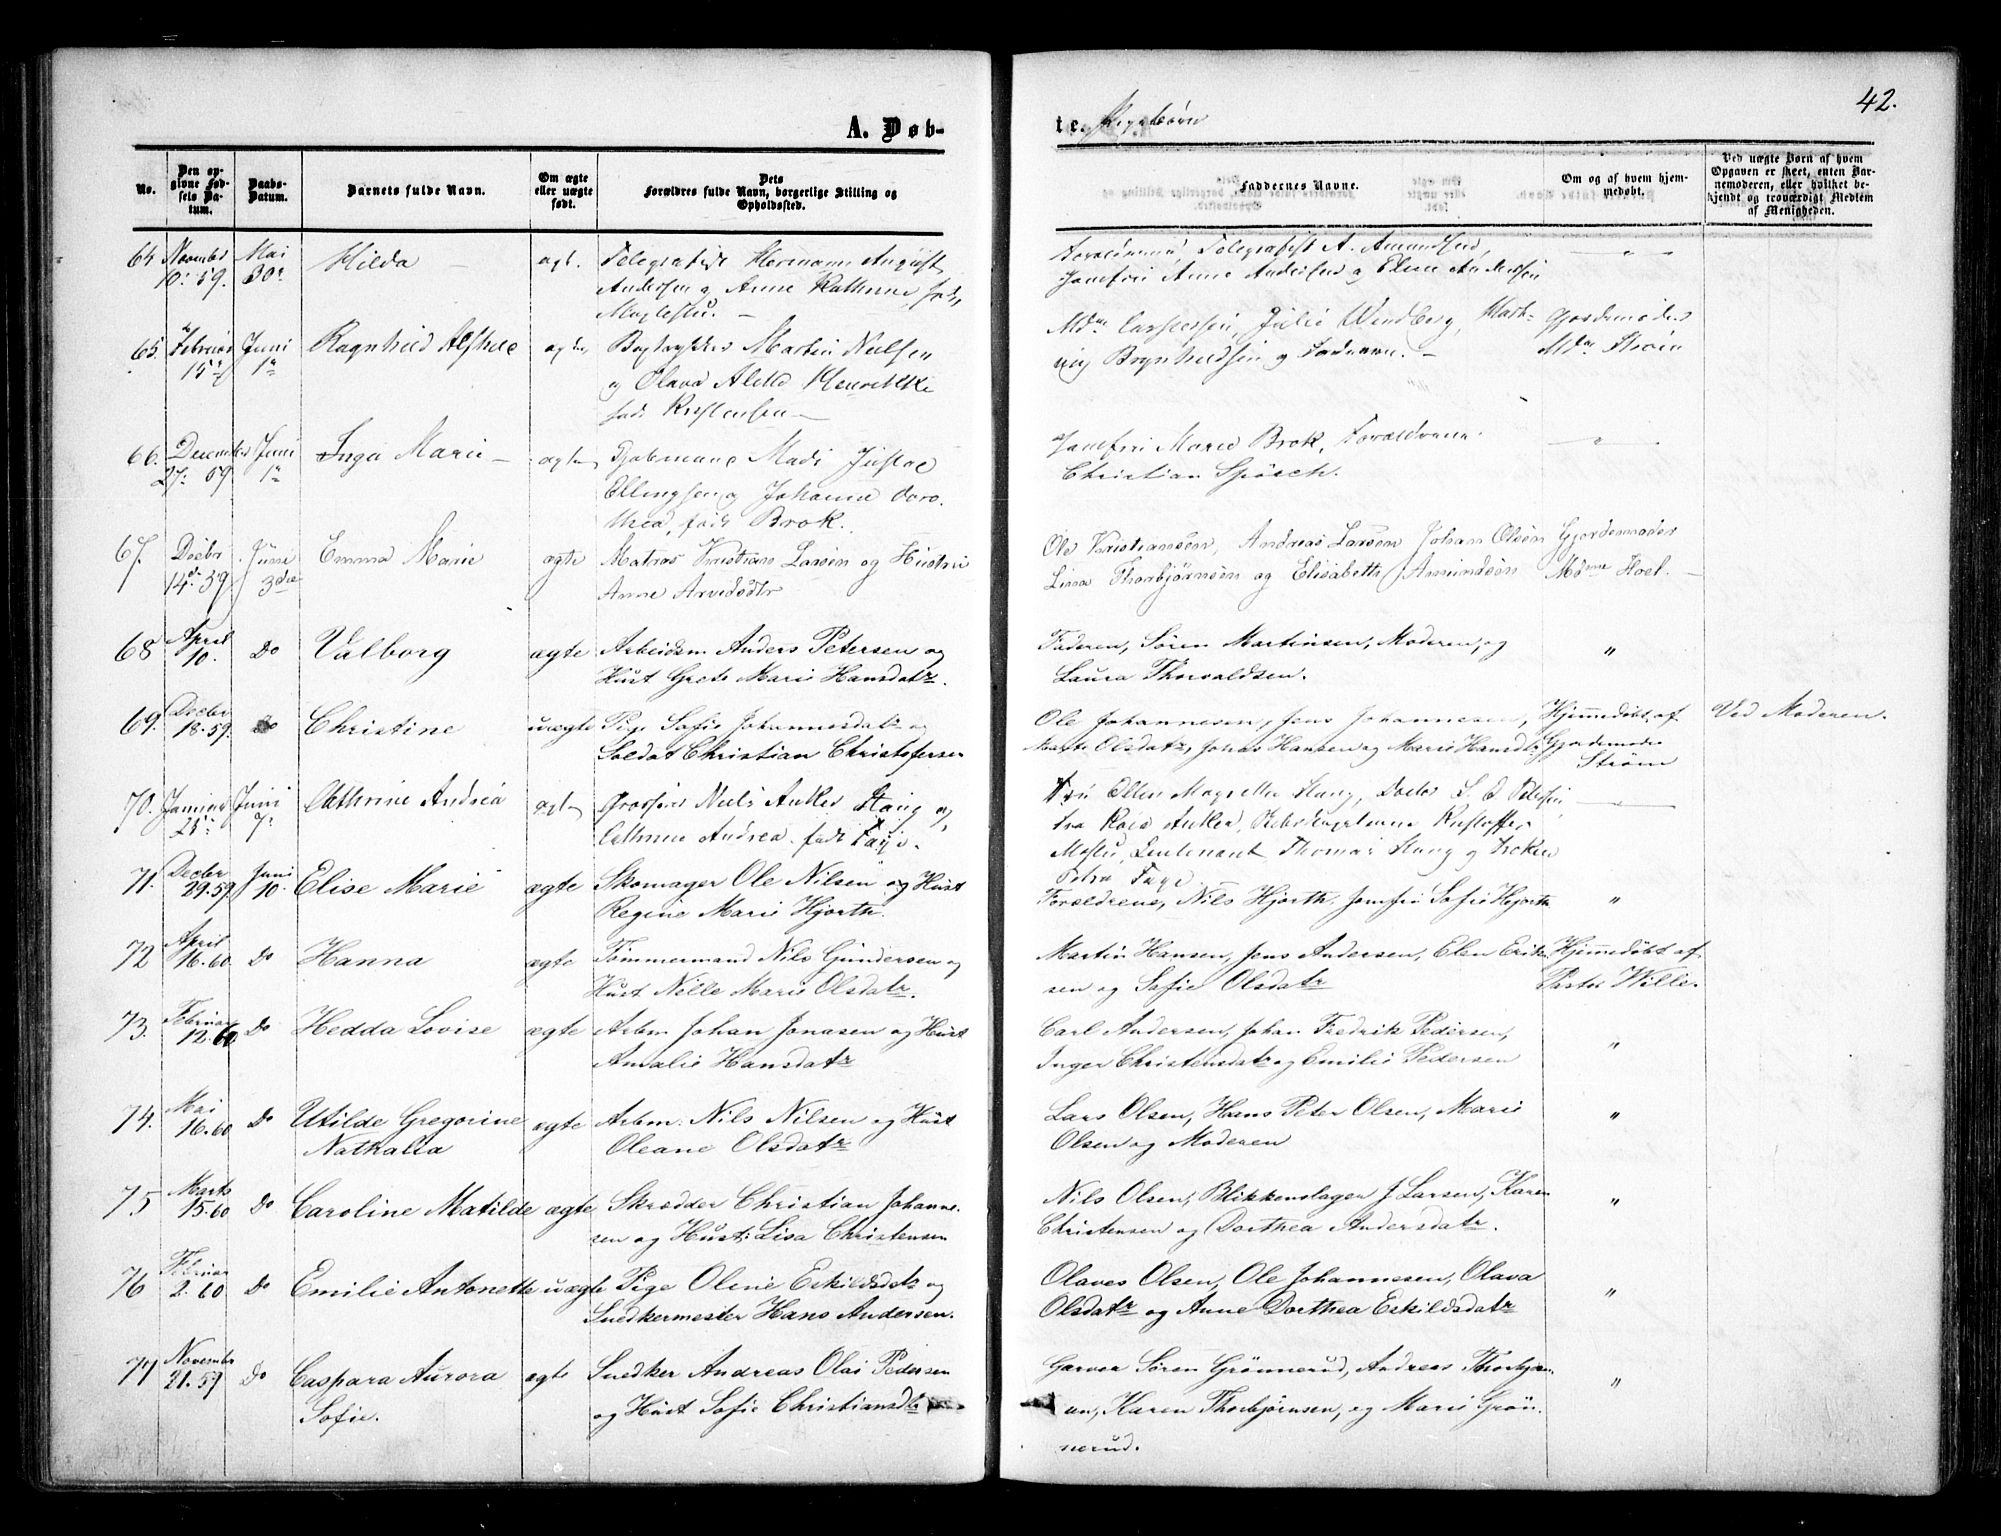 42.
A. Døb-
te. Pigebørn
No.
Den op-
givne Fød-
sels Da-
tum.
Daabs-
Datum.
Barnets fulde Navn.
Om ægte
eller uægte
født.
Dets
Forældres fulde Navn, borgerlige Stilling og
Opholdssted.
Faddernes Navne.
Om og af hvem hjem-
medøbt.
Ved uægte Børn af hvem
Opgaven er skeet, enten Bar-
nemoderen, eller hvilket be-
kjendt og troværdigt Medlem
af Menigheden.
64 November Mai Hilda — Hermann August
10. 59. 30 Andersen og Anne Kathrine
Telegrafist A. Amundsen,
Jomfru Anne Andersen og Eline Andersen
65. Februar Juni Ragnhild Martin Nielsen
15 1 og Olava Henrikke
Mdm Caspersen, Julie Windberg, Gjordemoder
og Mdm Strøm
66. December Juni Inga Marie — Mads
27. 59 1 Ellingsen og Johanne Doro-
thea, født Brok.
Jomfru Marie Brok, Forældrene
Christian
67. Decbr Juni Emma Marie ægte Matros Kristian Larsen og Hustru
14d. 59 3die Anne Arvedsdtr
Ole Kristiansen, Andreas Larsen Johan Olsen Gjordemoder
Lina Thorbjørnsen og Elisabeth Amundsen Mdme Hoel. —
68 April 10. Do Valborg ægte Arbeidsm Anders Petersen og
Hust Grete Marie Hansdatr.
Faderen, Søren Martinsen, Moderen, og "
Laura Thorvaldsen.
69. Decbr 18. 59. Do Christine uægte Pige Sofie Johannesdatr og
Soldat Christian Christofersen
Ole Johannesen, Jens Johannesen, Hjemmedøbt af Ved Moderen.
Marte Olsdatr, Johas Hansen og Marie Hansdtr Gjordemoder
Strøm
70. Januar Juni Cathrine Andrea Grosserer Niels Anker Stang og
25 7 Cathrine Andrea født Faye.
Fru Ellen Stang, Doctor L. Petersen
Anker,
Lieutenant Thomas Stang og Frøken
Faye
71. Decbr 29. 59 Juni 10. Elise Marie ægte Skomager Ole Nilsen og Hust
Regine Marie Hjorth.
Forældrene, Nils Hjorth. Jomfru Sofie Hjorth "
72 April 16. 60. Do Hanna ægte Tømmermand Nils Gundersen og
Hust Nelle Marie Olsdatr.
Martin Hansen, Jens Andersen, Elen Erik- Hjemmedøbt af
sen og Sofie Olsdatr Pastor Wille.
73. Februar 12. 60 Do Hedda Lovise ægte Arbm Johan Jonasen og Hust
Amalie Hansdatr
Carl Andersen, Johan Fredrik Pedersen, "
Inger Christensdatr og Emilie Pedersen
74. Mai 16. 60 Do Utilde Gregorine ægte Arbm. Nils Nilsen og Hust
Nathalia Oleane Olsdatr
Lars Olsen, Hans Peter Olsen, Marie "
Olsen og Moderen
75 Marts 15. 60 Do Caroline Matilde ægte Skrædder Christian Johanne-
sen og Hust: Lisa Christensen
Nils Olsen, Blikkenslager J Larsen, Karen "
Christensen og Dorthea Andersdatr.
76 Februar 2. 60 Do Emilie Antonette uægte Pige Oline Eskildsdatr og
Snedkermester Hans Andersen.
Olaves Olsen, Ole Johannesen, Olava "
Olsdatr og Anne Dorthea Eskildsdatr
77 November 21. 59 Do Caspara Aurora ægte Snedker Andreas Olai Pedersen
Sofie. og Hust Sofie Christiansdtr
Garver Søren Grønnerud, Andreas Thorbjørn- "
Karen Thorbjørnsen, og Marie Grøn-
nerud.